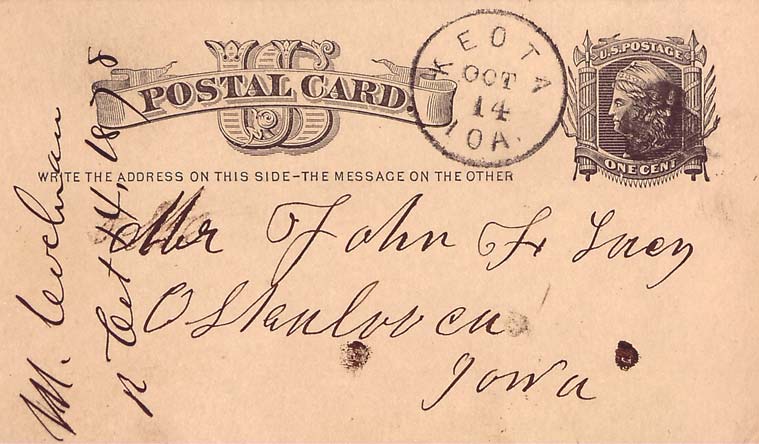 US
POSTAL CARD.
KEOTA
OCT
14
IOA.
U.S. POSTAGE
ONE CENT
WRITE THE ADDRESS ON THIS SIDE – THE MESSAGE ON THE OTHER
Mr John F. Lacy
Oskaloosa
Iowa
M.
R Oct 14, 1878